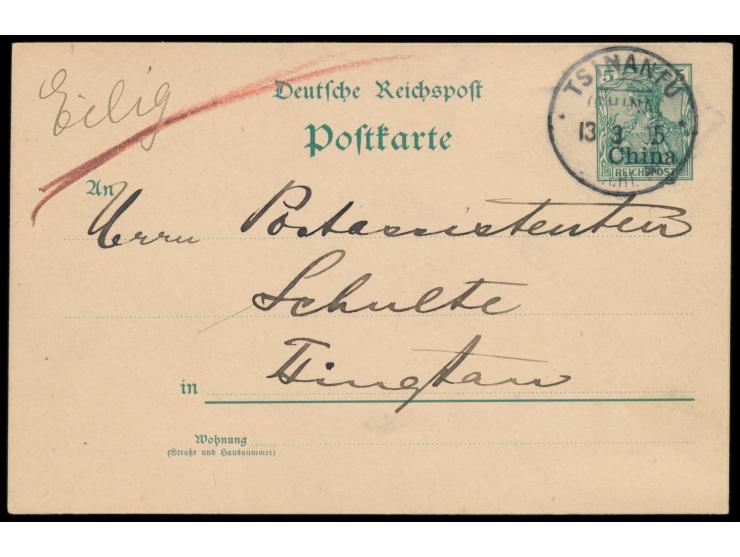 Eilig
Deutsche Reichspost
Postkarte
5
TSINANFU
(CHINA)
13 3 15
China
REICHSPOST
An
Herrn Postassistenten
Schulte
in Tsingtau
Wohnung
(Straße und Hausnummer)